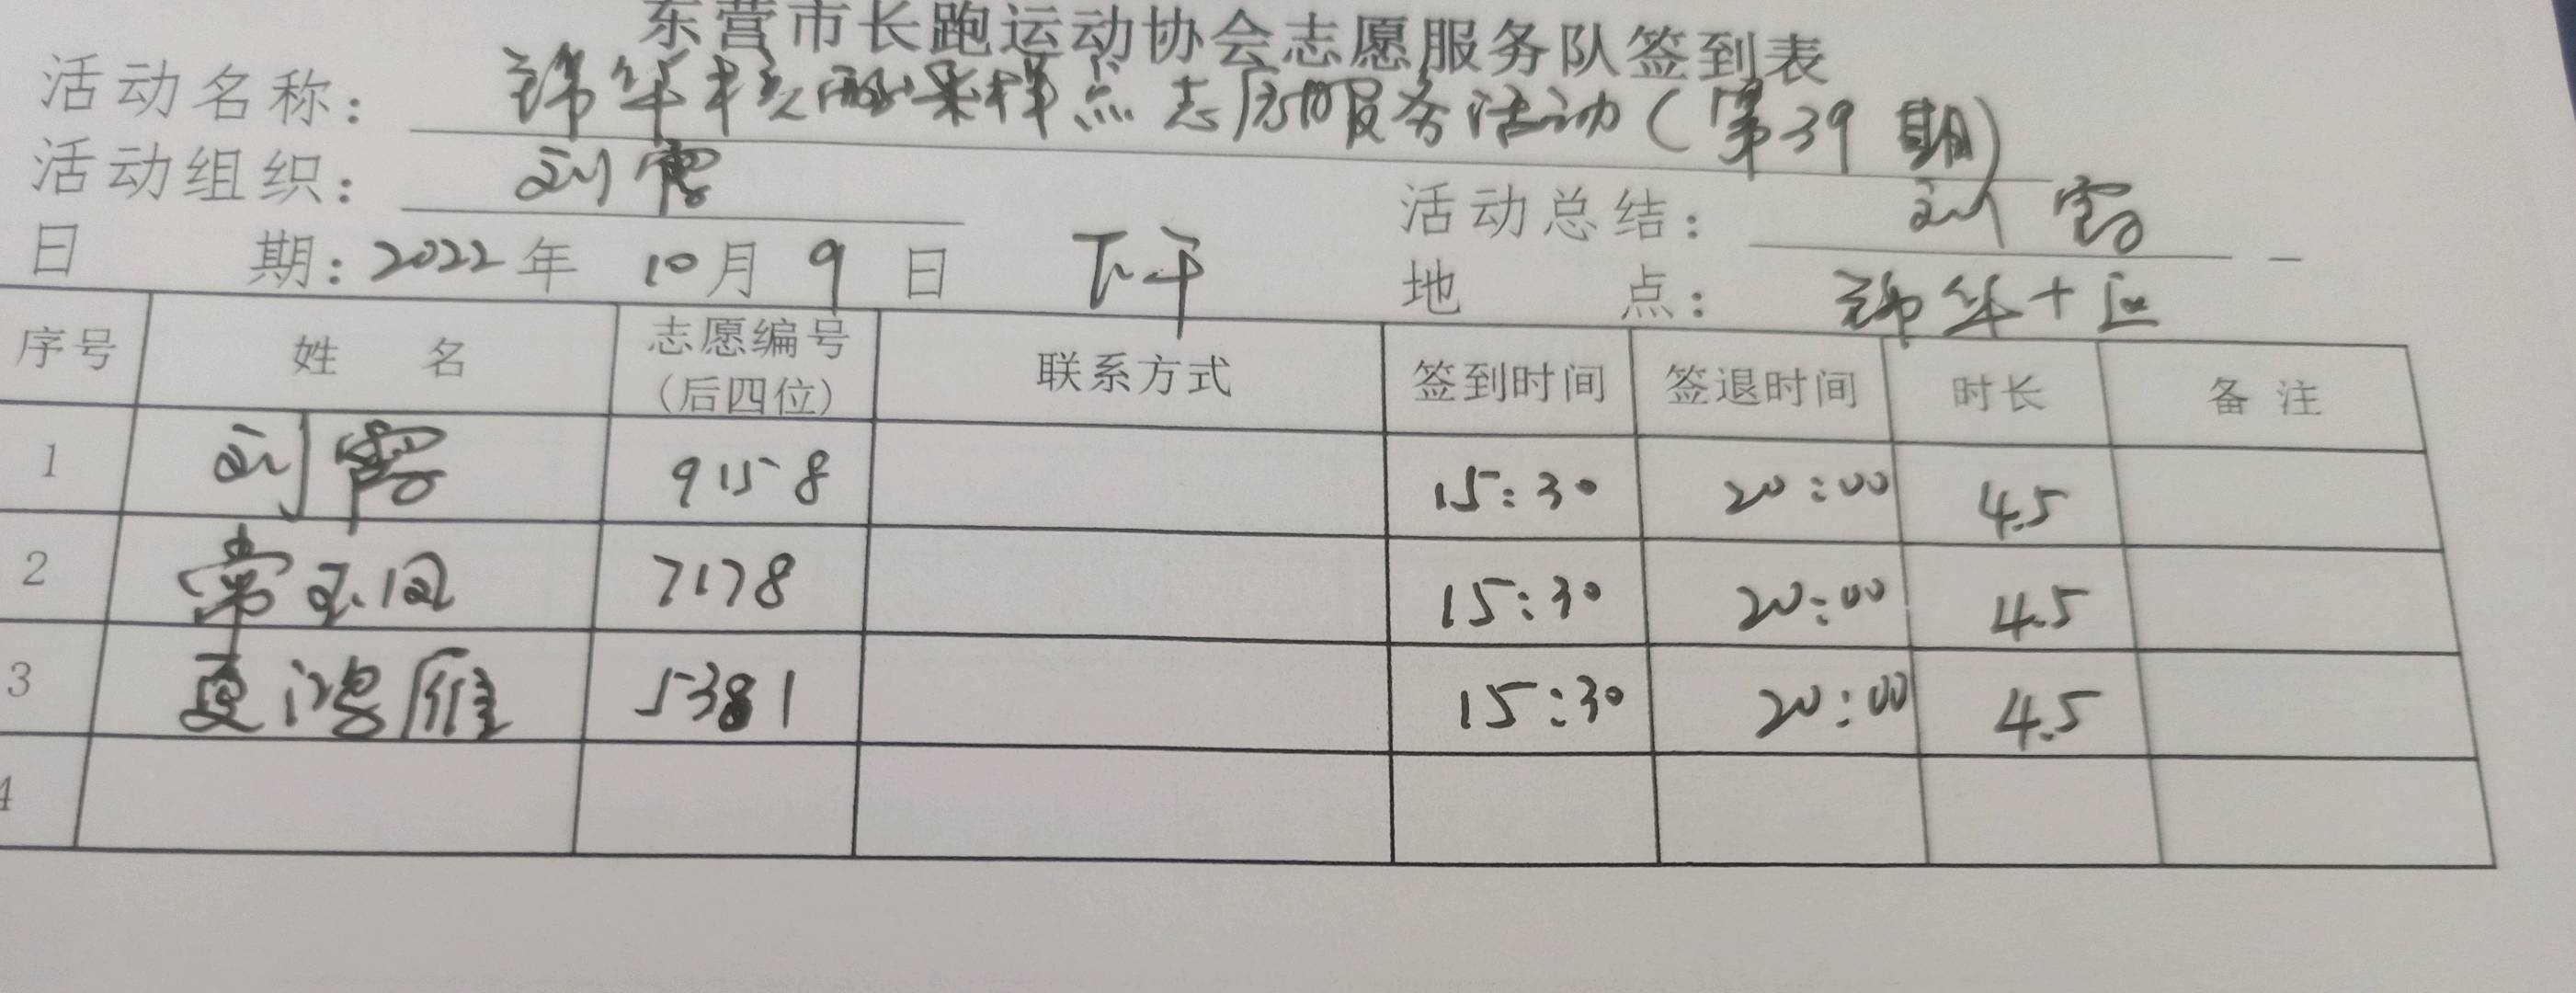 东营市长跑运动协会志愿服务队签到表
活动名称: 锦华核酸采样点志愿服务活动(第39期)
活动组织: 刘霞
活动总结: 刘霞
日期: 2022年 10月 9日 下午
地点: 锦华十区
序号 姓名 志愿编号(后四位) 联系方式 签到时间 签退时间 时长 备注
1 刘霞 9158 15:30 20:00 4.5
2 常玉 7178 15:30 20:00 4.5
3 夏鸿雁 5381 15:30 20:00 4.5
4